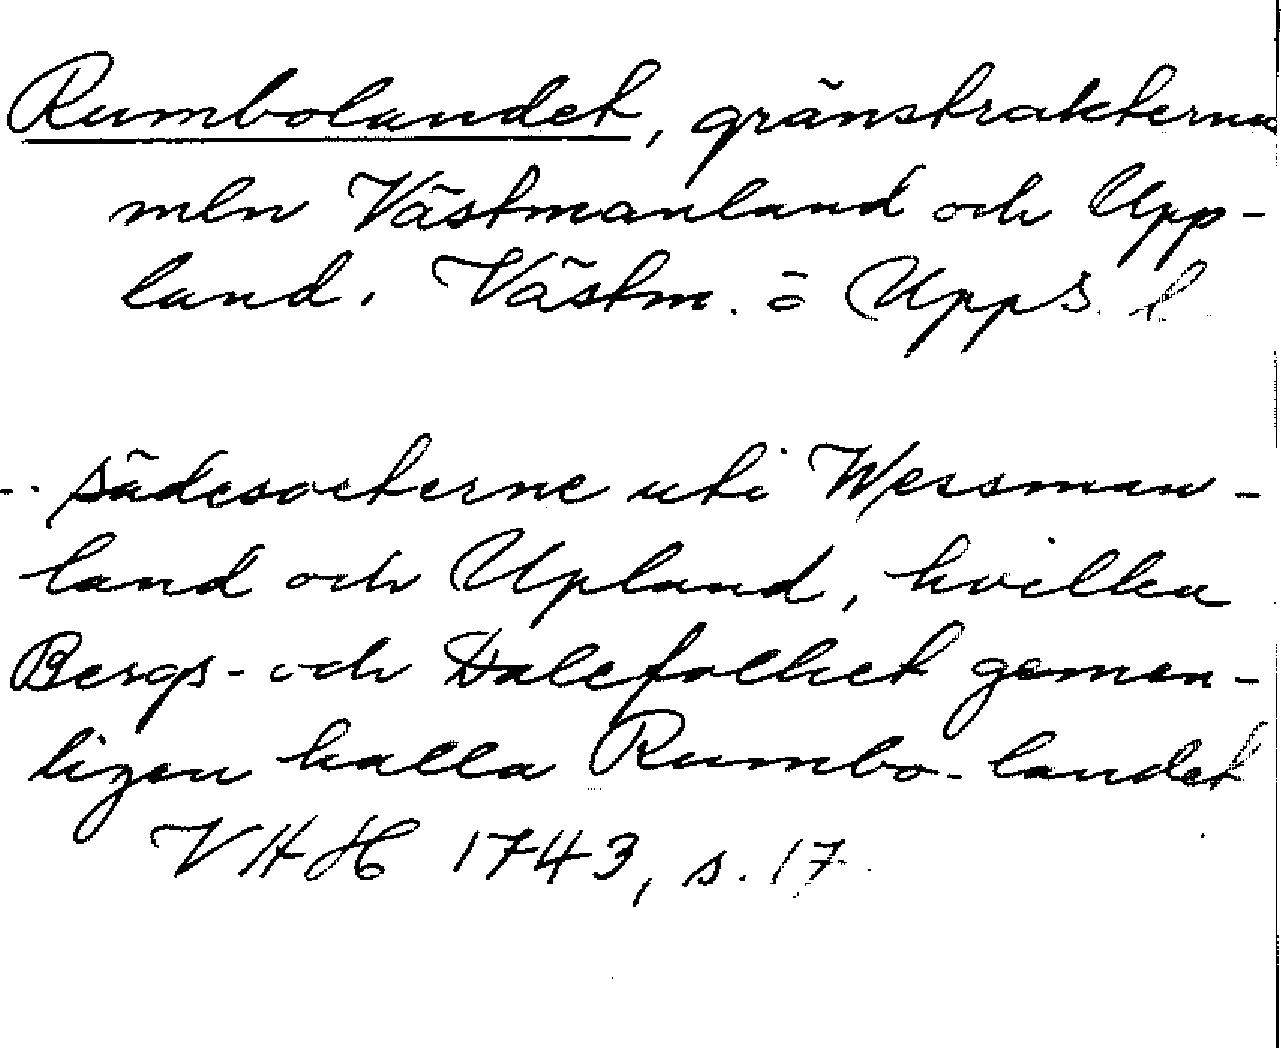 Rumbolandet, gränstrakterna
mln Västmanland och Upp-
land. Västm. o Upps. l
-. sädesorterne uti Wessman-
land och Upland, hvilka
Bergs- och Dalefolket gemen-
ligen kalla Rumbo-landet
VHH 1743, s. 17